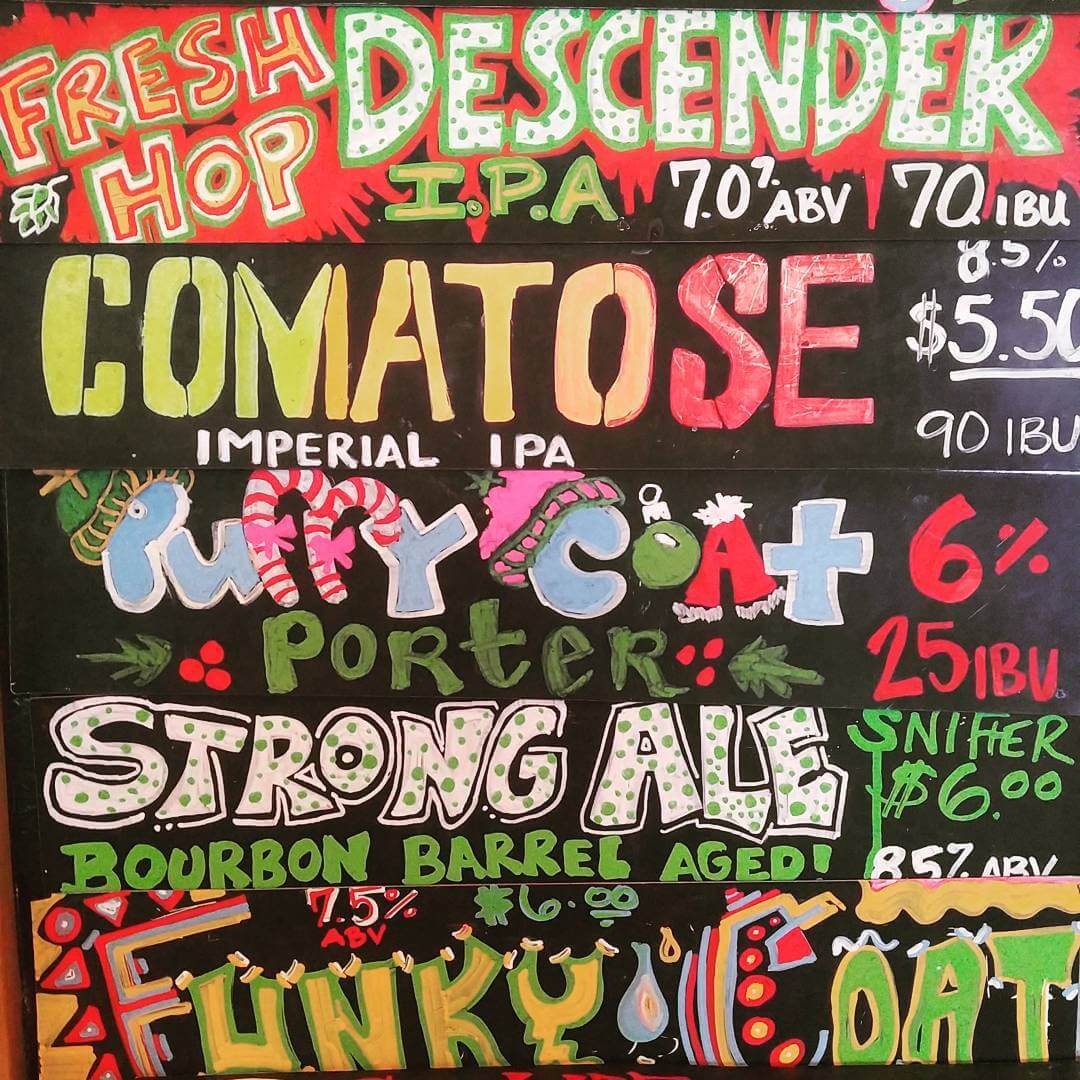 FRESH HOP DESCENDER
I.P.A 7.0% ABV 70 IBU
COMATOSE
8.5%
$5.50
IMPERIAL IPA
90 IBU
PUFFY COAT
6%
PORTER
25 IBU
STRONG ALE
SNIFTER
$6.00
BOURBON BARREL AGED!
8.5% ABV
7.5%
ABV
$6.00
FUNKY COAT